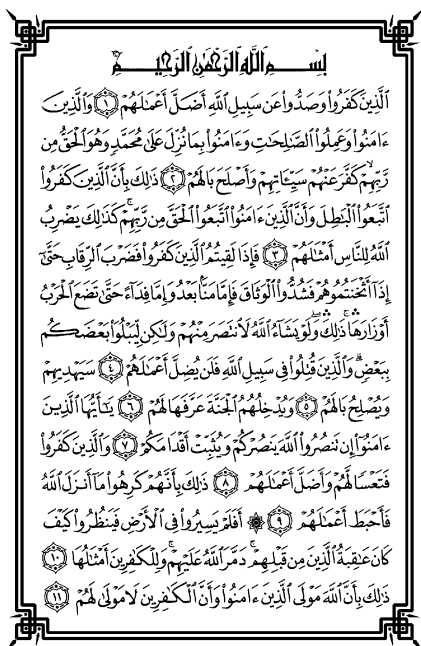 بِسْمِ ٱللَّهِ ٱلرَّحْمَٰنِ ٱلرَّحِيمِ
ٱلَّذِينَ كَفَرُوا۟ وَصَدُّوا۟ عَن سَبِيلِ ٱللَّهِ أَضَلَّ أَعْمَٰلَهُمْ ۝١ وَٱلَّذِينَ
ءَامَنُوا۟ وَعَمِلُوا۟ ٱلصَّٰلِحَٰتِ وَءَامَنُوا۟ بِمَا نُزِّلَ عَلَىٰ مُحَمَّدٍ وَهُوَ ٱلْحَقُّ مِن
رَّبِّهِمْ ۙ كَفَّرَ عَنْهُمْ سَيِّـَٔاتِهِمْ وَأَصْلَحَ بَالَهُمْ ۝٢ ذَٰلِكَ بِأَنَّ ٱلَّذِينَ كَفَرُوا۟
ٱتَّبَعُوا۟ ٱلْبَٰطِلَ وَأَنَّ ٱلَّذِينَ ءَامَنُوا۟ ٱتَّبَعُوا۟ ٱلْحَقَّ مِن رَّبِّهِمْ ۚ كَذَٰلِكَ يَضْرِبُ
ٱللَّهُ لِلنَّاسِ أَمْثَٰلَهُمْ ۝٣ فَإِذَا لَقِيتُمُ ٱلَّذِينَ كَفَرُوا۟ فَضَرْبَ ٱلرِّقَابِ حَتَّىٰٓ
إِذَآ أَثْخَنتُمُوهُمْ فَشُدُّوا۟ ٱلْوَثَاقَ فَإِمَّا مَنًّۢا بَعْدُ وَإِمَّا فِدَآءً حَتَّىٰ تَضَعَ ٱلْحَرْبُ
أَوْزَارَهَا ۚ ذَٰلِكَ ۖ وَلَوْ يَشَآءُ ٱللَّهُ لَٱنتَصَرَ مِنْهُمْ وَلَٰكِن لِّيَبْلُوَا۟ بَعْضَكُم
بِبَعْضٍ ۗ وَٱلَّذِينَ قُتِلُوا۟ فِى سَبِيلِ ٱللَّهِ فَلَن يُضِلَّ أَعْمَٰلَهُمْ ۝٤ سَيَهْدِيهِمْ
وَيُصْلِحُ بَالَهُمْ ۝٥ وَيُدْخِلُهُمُ ٱلْجَنَّةَ عَرَّفَهَا لَهُمْ ۝٦ يَٰٓأَيُّهَا ٱلَّذِينَ
ءَامَنُوٓا۟ إِن تَنصُرُوا۟ ٱللَّهَ يَنصُرْكُمْ وَيُثَبِّتْ أَقْدَامَكُمْ ۝٧ وَٱلَّذِينَ كَفَرُوا۟
فَتَعْسًا لَّهُمْ وَأَضَلَّ أَعْمَٰلَهُمْ ۝٨ ذَٰلِكَ بِأَنَّهُمْ كَرِهُوا۟ مَآ أَنزَلَ ٱللَّهُ
فَأَحْبَطَ أَعْمَٰلَهُمْ ۝٩ ۞ أَفَلَمْ يَسِيرُوا۟ فِى ٱلْأَرْضِ فَيَنظُرُوا۟ كَيْفَ
كَانَ عَٰقِبَةُ ٱلَّذِينَ مِن قَبْلِهِمْ ۚ دَمَّرَ ٱللَّهُ عَلَيْهِمْ ۖ وَلِلْكَٰفِرِينَ أَمْثَٰلُهَا ۝١٠
ذَٰلِكَ بِأَنَّ ٱللَّهَ مَوْلَى ٱلَّذِينَ ءَامَنُوا۟ وَأَنَّ ٱلْكَٰفِرِينَ لَا مَوْلَىٰ لَهُمْ ۝١١